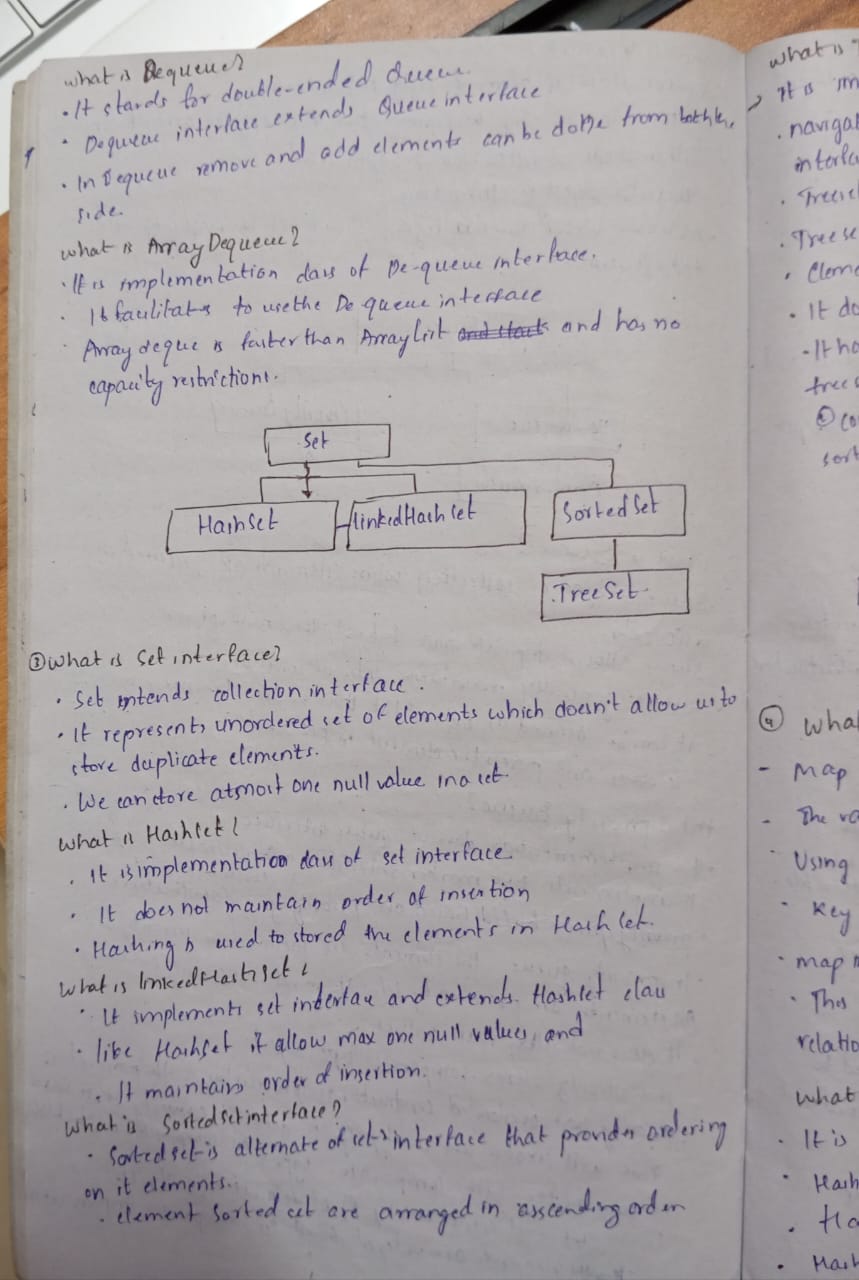 What is Dequeue?
• It stands for double-ended Queue.
• Dequeue interface extends Queue interface
• In Dequeue remove and add elements can be done from both the
side.
What is Array Dequeue?
• It is implementation class of De-queue interface.
• It facilitates to use the De queue interface
• Array deque is faster than Array list and stack and has no
capacity restrictions.
Set
HashSet
linkedHash set
Sorted Set
TreeSet
③ What is Set interface?
• Set extends collection interface.
• It represents unordered set of elements which doesn't allow us to
store duplicate elements.
• We can store atmost one null value in a set.
What is Hashset?
• It is implementation class of set interface
• It does not maintain order of insertion
• Hashing is used to stored the elements in Hash set.
What is linkedHashset?
• It implements set interface and extends Hashset class
• like Hashset it allow max one null values, and
• It maintains order of insertion.
What is Sortedset interface?
• Sorted set is alternate of set interface that provides ordering
on it elements.
• element Sorted set are arranged in asscending order
What is
It is
interfa
• Tree se
• It do
• It ha
tree s
sort
④ Wha
- Map
- The va
Using
• Key
• map
• This
relatio
What
• It is
• Hash
• Ha
• Hash